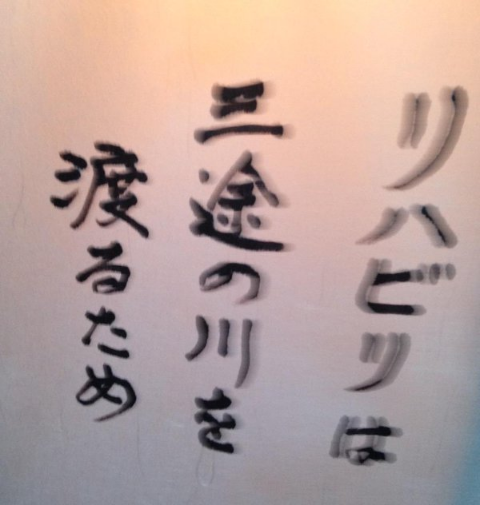 リハビリは
三途の川を
渡るため